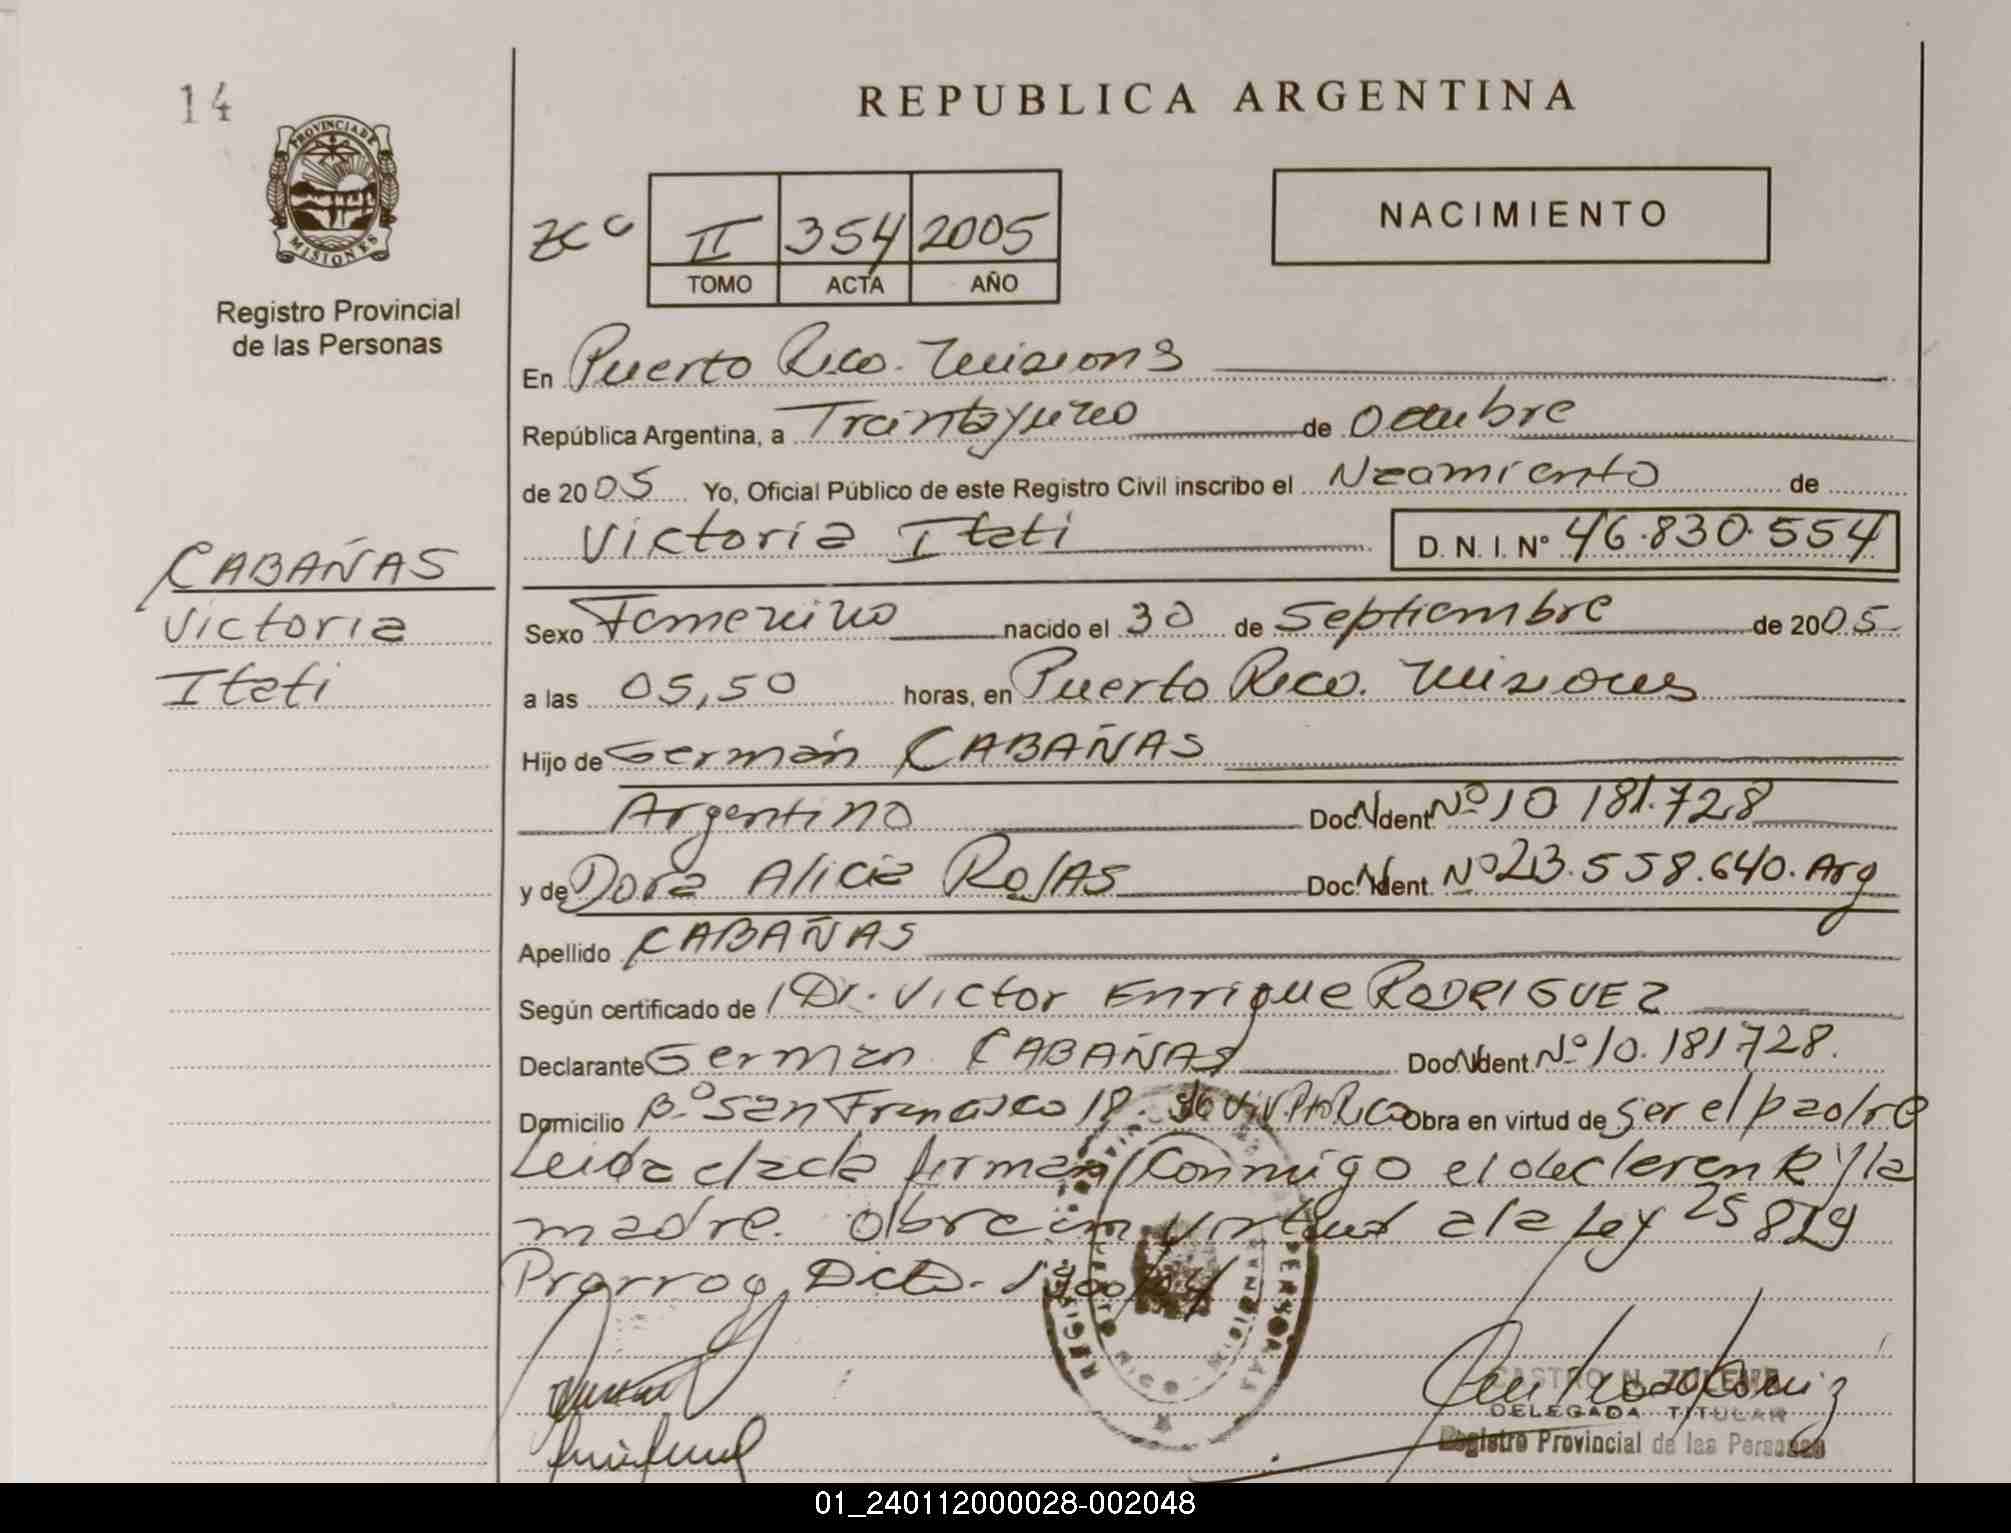 14
REPUBLICA ARGENTINA
PROVINCIA DE
MISIONES
Registro Provincial
de las Personas
II 354 2005
TOMO ACTA AÑO
NACIMIENTO
En Puerto Rico. Misiones
República Argentina, a Treintayuno de Octubre
de 2005 Yo, Oficial Público de este Registro Civil inscribo el Nacimiento de
Victoria Itati D. N. I. Nº 46.830.554
CABAÑAS
Victoria
Itati
Sexo Femenino nacido el 30 de Septiembre de 2005
a las 05,50 horas, en Puerto Rico. Misiones
Hijo de Germán CABAÑAS
Argentino Doc. Ident. Nº 10 181.728
y de Dora Alicia ROJAS Doc. Ident. Nº 23.558.640. Arg
Apellido CABAÑAS
Según certificado de Dr. Victor Enrique RODRIGUEZ
Declarante German CABAÑAS Doc. Ident. Nº 10.181 728.
Domicilio Bº San Francisco Viv. Pto Rico Obra en virtud de ser el padre
Leida el acta firman conmigo el declarante y la
madre. Obra en virtud a la Ley 25 819
Prorrog. Dcto.
CASTRO N. ZULEMA
DELEGADA TITULAR
Registro Provincial de las Personas
01_240112000028-002048